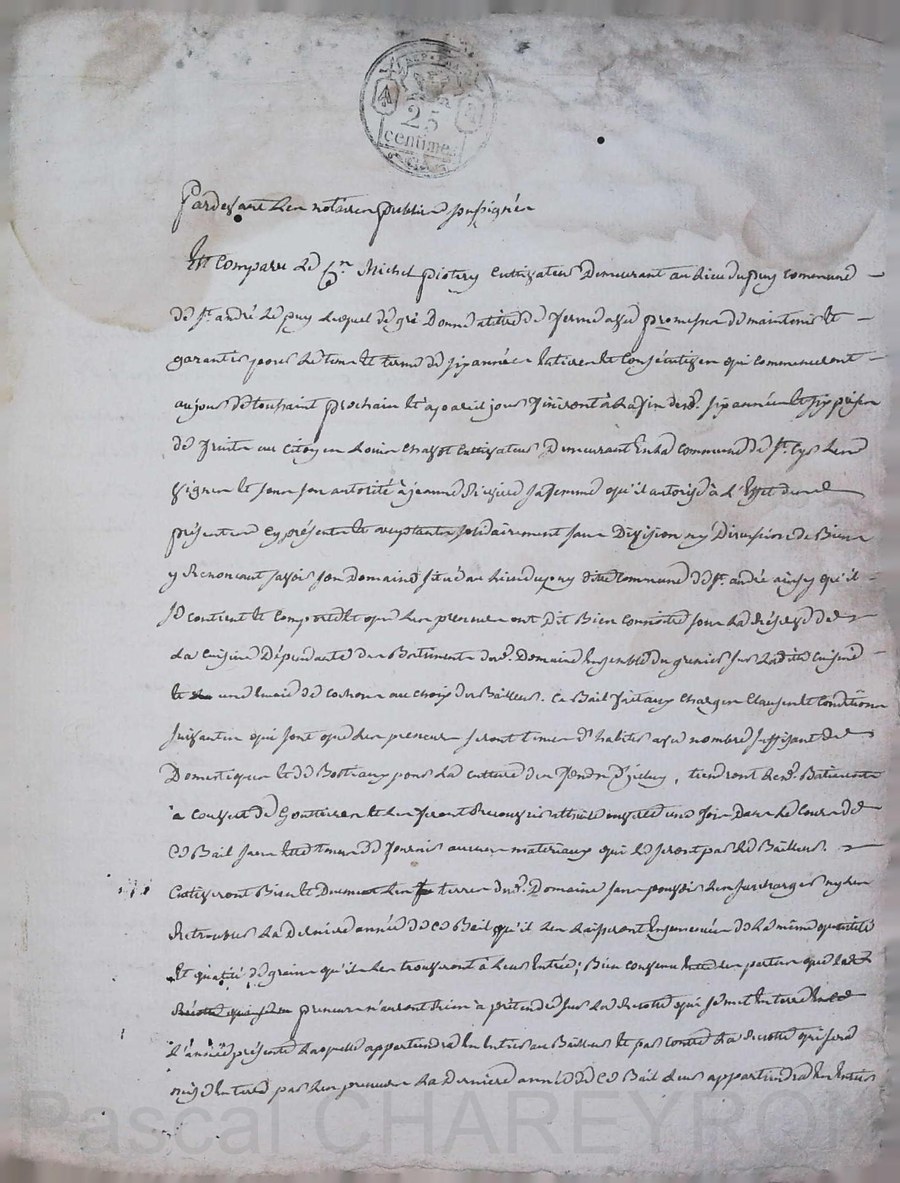 REP. FRA.
25
centimes
Pardevant les notaires publics soussignés
Est comparu le Cn. Michel piotery cultivateur Demeurant au lieu du puy commune
de St. andré le puy lequel de gré Donne a titre de ferme avec promesse de maintenir et
garantir pour le tems et terme de six années entieres et consécutives qui commenceront
au jour de toussaint prochain et a pareil jour finiront à la fin desd. six années et six prises
de fruits au citoyen Louis chazot cultivateur Demeurant en la commune de St. Cyr les
vignes et sous son autorité à jeanne sa femme qu'il autorise à l'effet des
présentes cy présents et acceptants solidairement sans Division ny Discussion de Biens
y Renoncant savoir son Domaine situé au lieu du puy dite commune de St. andré ainsy qu'il
se contient et comporte et que les preneurs ont dit Bien connoitre sous la réserve de
la cuisine Dépendante des Batiments dud. Domaine ensemble du grenier sur ladite cuisine
et une de cochons au choix du Bailleur. Ce Bail fait aux charges clauses et conditions
suivantes qui sont que les preneurs seront tenus d'habiter avec nombre suffisant de
Domestiques et de Bestiaux pour la culture des fonds d'iceluy, tiendront lesd. Batiments
à couvert de Gouttieres et les feront Recouvrir à thuile une fois Dans le cours de
ce Bail sans etre tenus de fournir aucuns materiaux qui le seront par le Bailleur.
Cultiveront Bien et Duement les terres dud. Domaine sans pouvoir les surcharger ny les
Retroubler la Derniere année de ce Bail qu'il les laisseront Ensemencées de la même quantité
Et qualité de grains qu'il les trouveront à leur Entrée; Bien convenu entre les parties que les
preneurs n'auront Rien à prétendre sur la Recolte qui se met en terre
L'année présente laquelle appartiendra en entier au Bailleur et par contre la Recolte qui sera
mise en terre par les preneurs la Derniere année de ce Bail leur appartiendra en entier
Pascal CHAREYRON